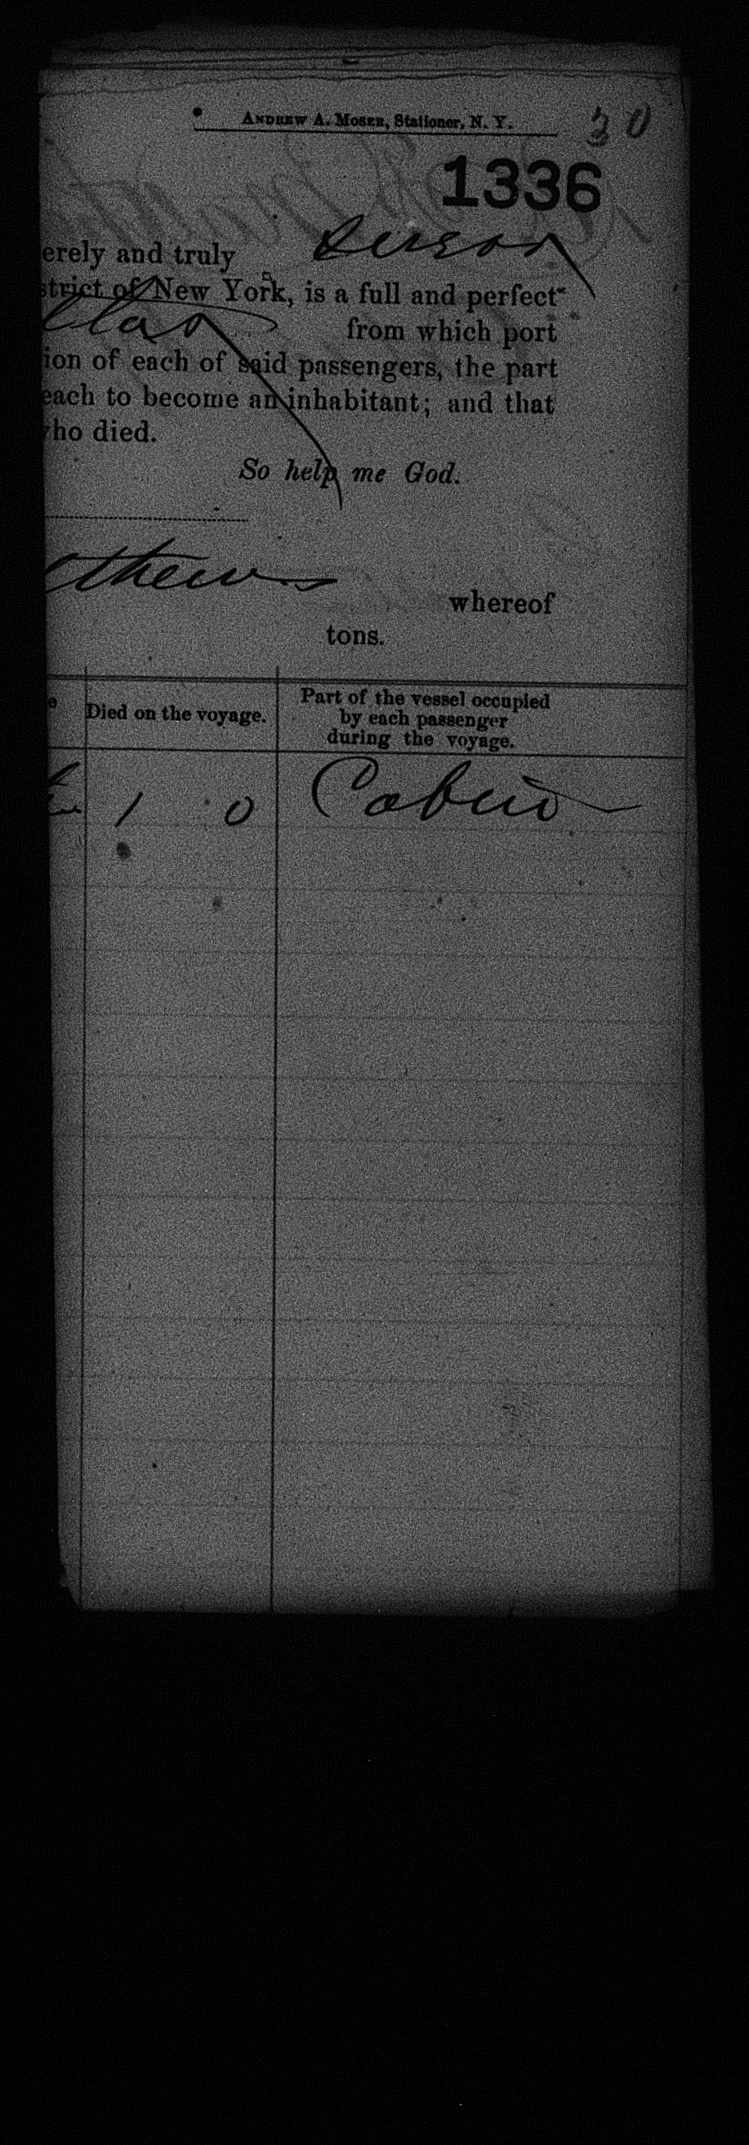 Andrew A. Moser, Stationer, N. Y.
30
1336
erely and truly swear
strict of New York, is a full and perfect
from which port
ion of each of said passengers, the part
each to become an inhabitant; and that
who died.
So help me God.
thews
whereof
tons.
e
Died on the voyage.
Part of the vessel occupied
by each passenger
during the voyage.
1 0 Cabin